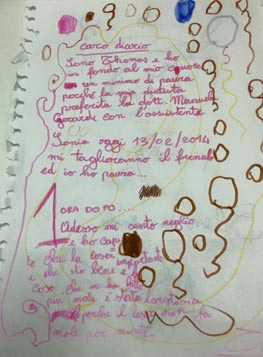 caro diario
Sono Thomas e ho
in fondo al mio cuore
un minimo di paura
perché la mia dentista
preferita la dott. Manuela
con l'assistente
Sonia oggi 13/02/2014
mi taglieranno il frenulo
ed io ho paura...
1 ORA DO PO....
Adesso mi sento meglio
e ho cap
to che la cosa importante
è che sto bene e la
cosa che mi ha fatto
più male è stata l'anestesia
perché il laser non fa
male per niente.